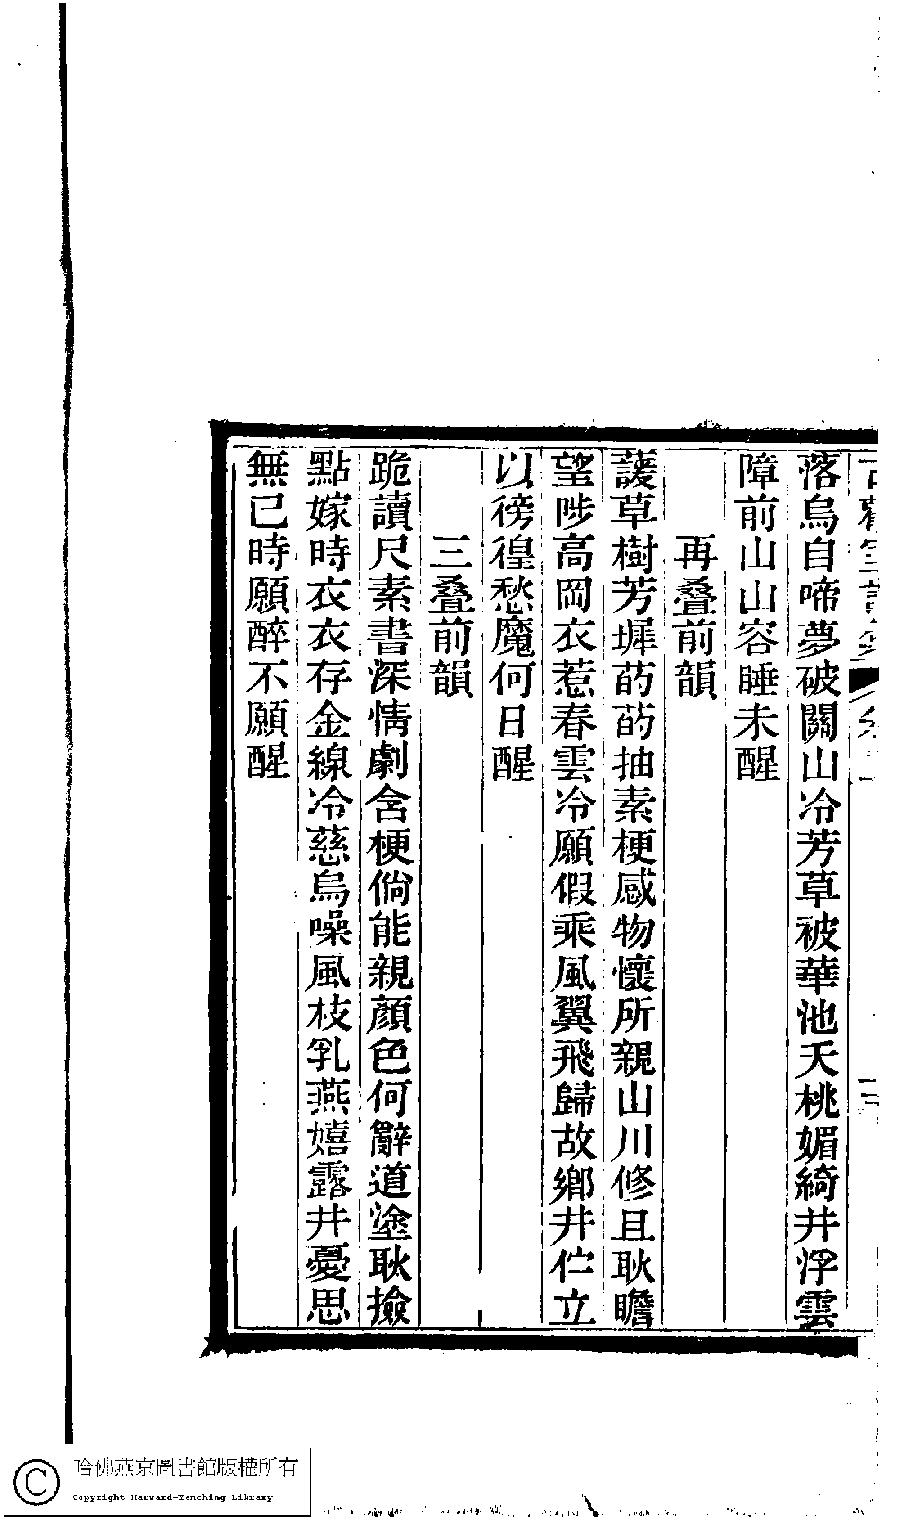 落烏自啼夢破關山冷芳草被華池夭桃媚綺井浮雲
障前山山容睡未醒
再疊前韻
護草樹芳墀菂菂抽素梗感物懷所親山川修且耿瞻
望陟高岡衣惹春雲冷願假乘風翼飛歸故鄉井伫立
以徬徨愁魔何日醒
三疊前韻
跪讀尺素書深情劇含梗倘能親顏色何辭道塗耿撿
點嫁時衣衣存金線冷慈烏噪風枝乳燕嬉露井憂思
無已時願醉不願醒
哈佛燕京圖書館版權所有
Copyright Harvard-Yenching Library